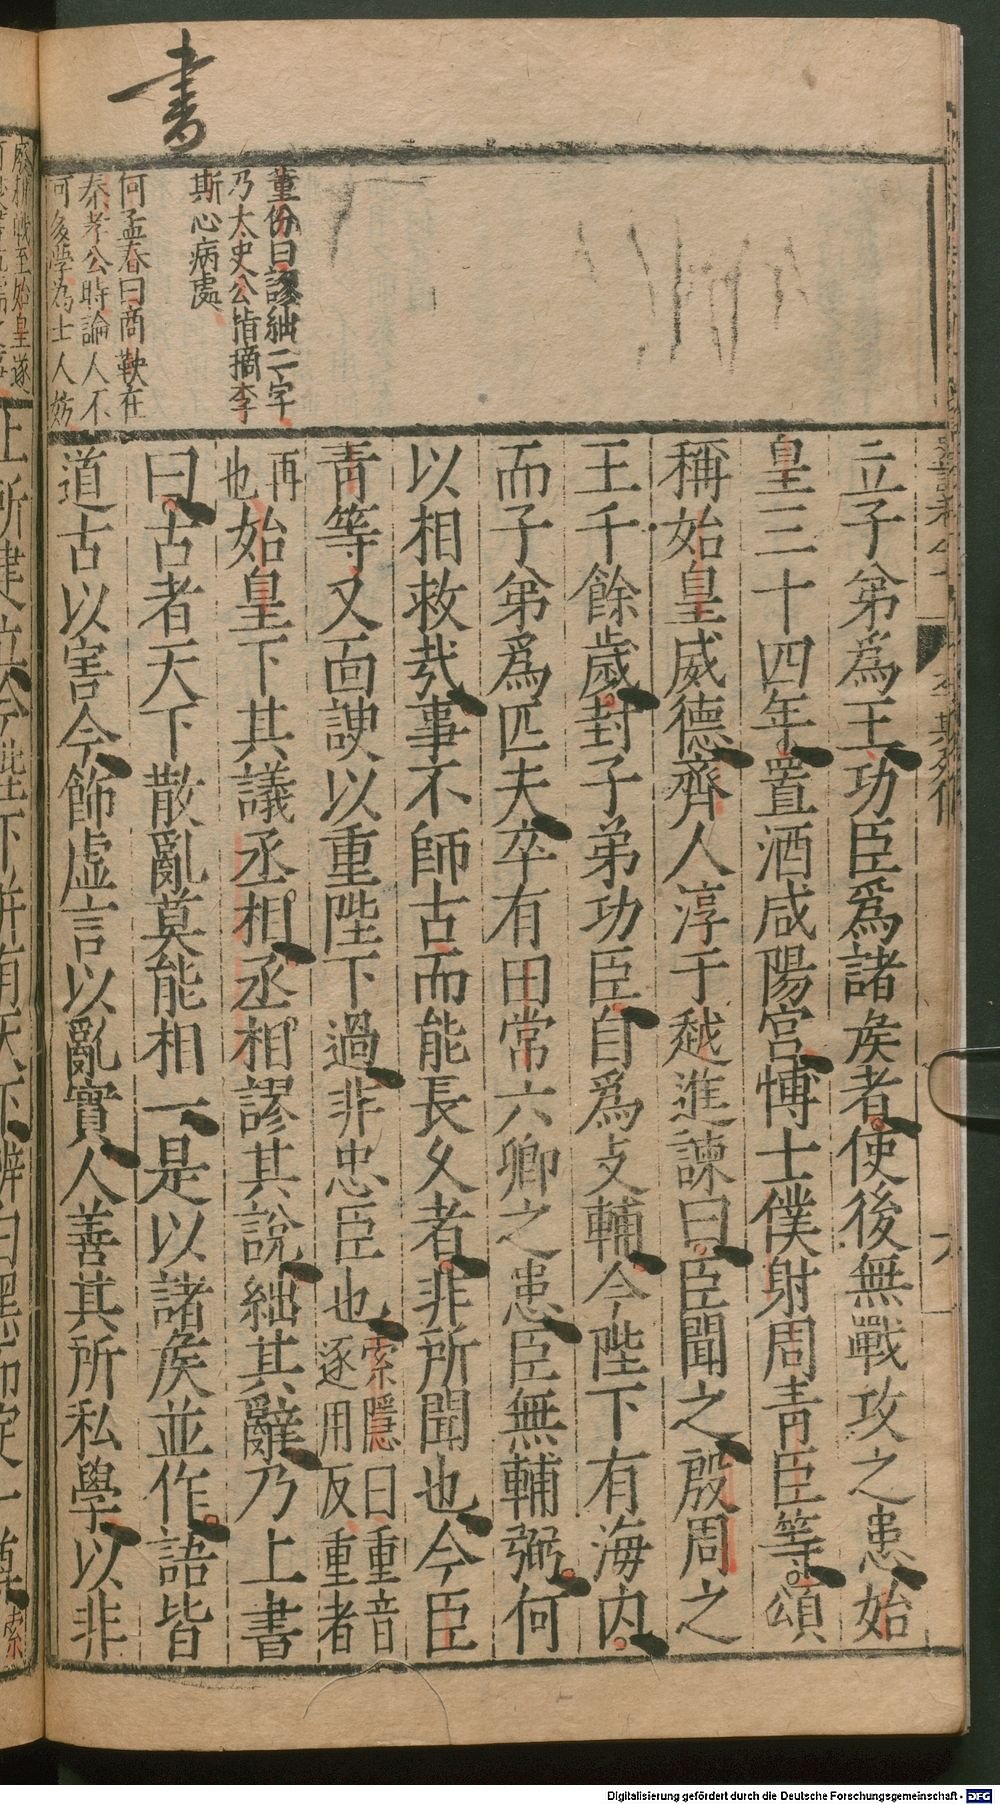 書
董份曰謬絀二字
乃太史公指摘李
斯心病處
何孟春曰商鞅在
秦孝公時論人不
可多學為士人妨
立子弟爲王功臣爲諸矦者使後無戰攻之患始
皇三十四年置酒咸陽宮愽士僕射周青臣等頌
稱始皇威德齊人淳于越進諫曰臣聞之殷周之
王千餘歲封子弟功臣自爲支輔今陛下有海内
而子弟爲匹夫卒有田常六卿之患臣無輔弼何
以相救哉事不師古而能長久者非所聞也今臣
青等又面諛以重陛下過非忠臣也索隱曰重音
逐用反重者
再
也始皇下其議丞相丞相謬其說絀其辭乃上書
曰古者天下散亂莫能相一是以諸矦並作語皆
道古以害今飾虛言以亂實人善其所私學以非
上所建立今陛下并有天下辨白黑而定一尊索
Digitalisierung gefördert durch die Deutsche Forschungsgemeinschaft - DFG